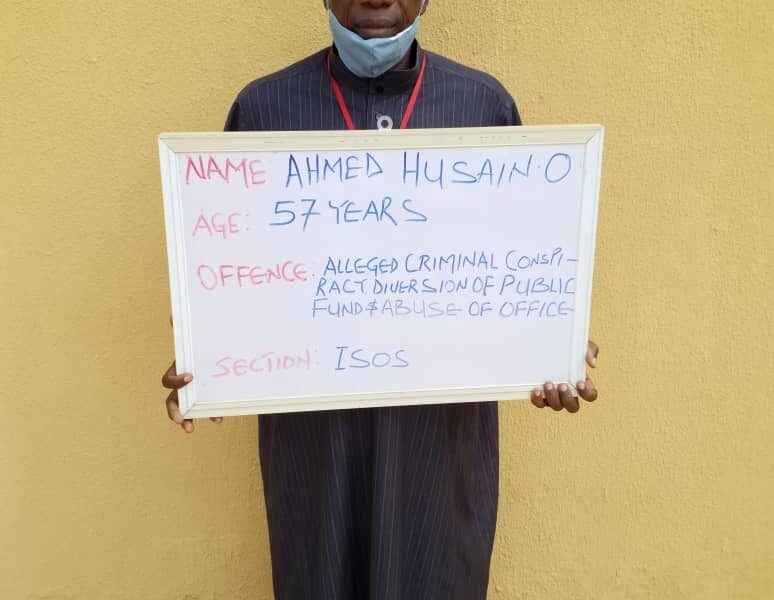 NAME AHMED HUSAIN.O
AGE: 57 YEARS
OFFENCE: ALLEGED CRIMINAL CONSPI-
RACT DIVERSION OF PUBLIC
FUND $ ABUSE OF OFFICE
SECTION: ISOS